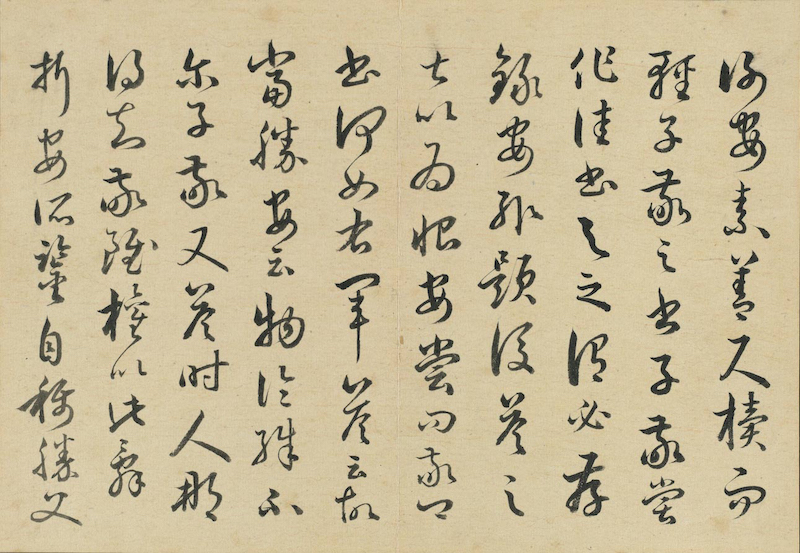 謝安素善尺牘而
輕子敬之書子敬嘗
作佳書與之謂必存
錄安輒題後答之
甚以為恨安嘗問敬卿
書何如右軍答云故
當勝安云物論殊不
尔子敬又答時人那
得知敬雖權以此辭
折安所鑒自稱勝父